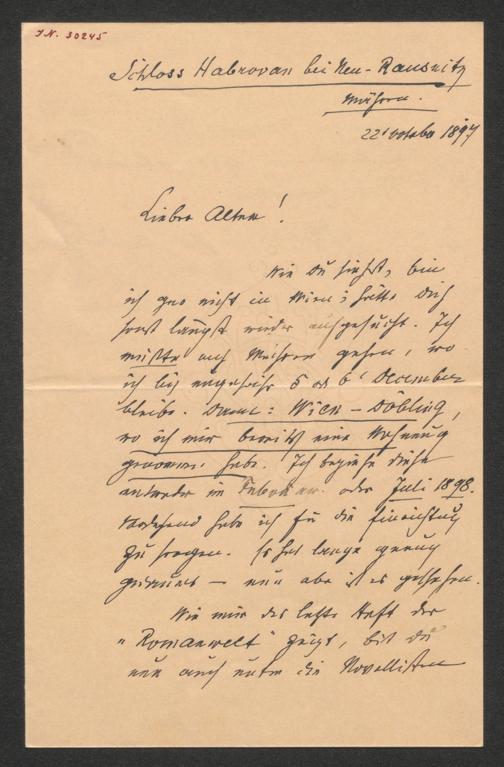 J.N. 30245
Schloss Habrovan bei Neu-Rausnitz
Mähren.
22 October 1897
Lieber Alter!
Wie Du siehst, bin
ich gar nicht in Wien; hätte Dich
sonst längst wieder aufgesucht. Ich
mußte nach Mähren gehen, wo
ich bis ungefähr 5 od 6t December
bleibe. Dann: Wien – Döbling,
wo ich mir bereits eine Wohnung
genommen habe. Ich beziehe diese
entweder im Februar oder Juli 1898.
habe ich für die Einrichtung
zu sorgen. Es hat lange genug
– nun aber ist es geschehen.
Wie mir das letzte Heft der
„Romanwelt" zeigt, bist Du
nun auch unter die Novellisten